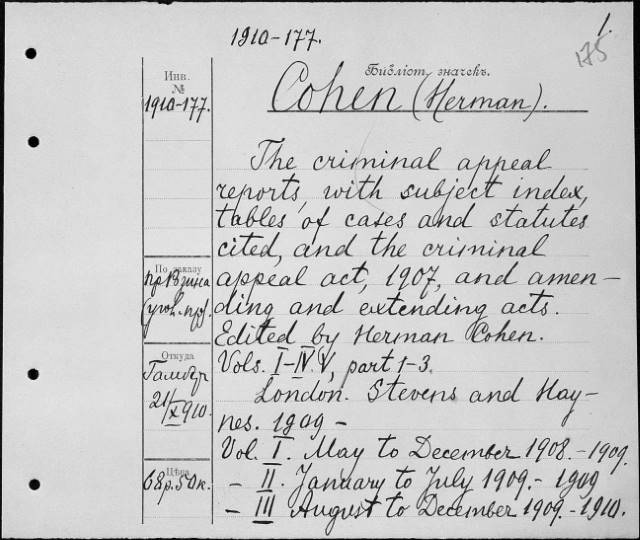 1.
1910-177.
175
Инв.
№
1910-177.
Библіот. значекъ.
Cohen (Herman).
The criminal appeal
reports, with subject index,
tables of cases and statutes
cited, and the criminal
appeal act, 1907, and amen-
ding and extending acts.
Edited by Herman Cohen.
Vols. I-IV. V, part 1-3.
London. Stevens and Hay-
nes. 1909 -
Vol. I. May to December 1908.-1909.
- II. January to July 1909.- 1909
- III August to December 1909.-1910.
По заказу
(угол. пр).
Откуда
21/X 910.
Цѣна
68р. 50к.